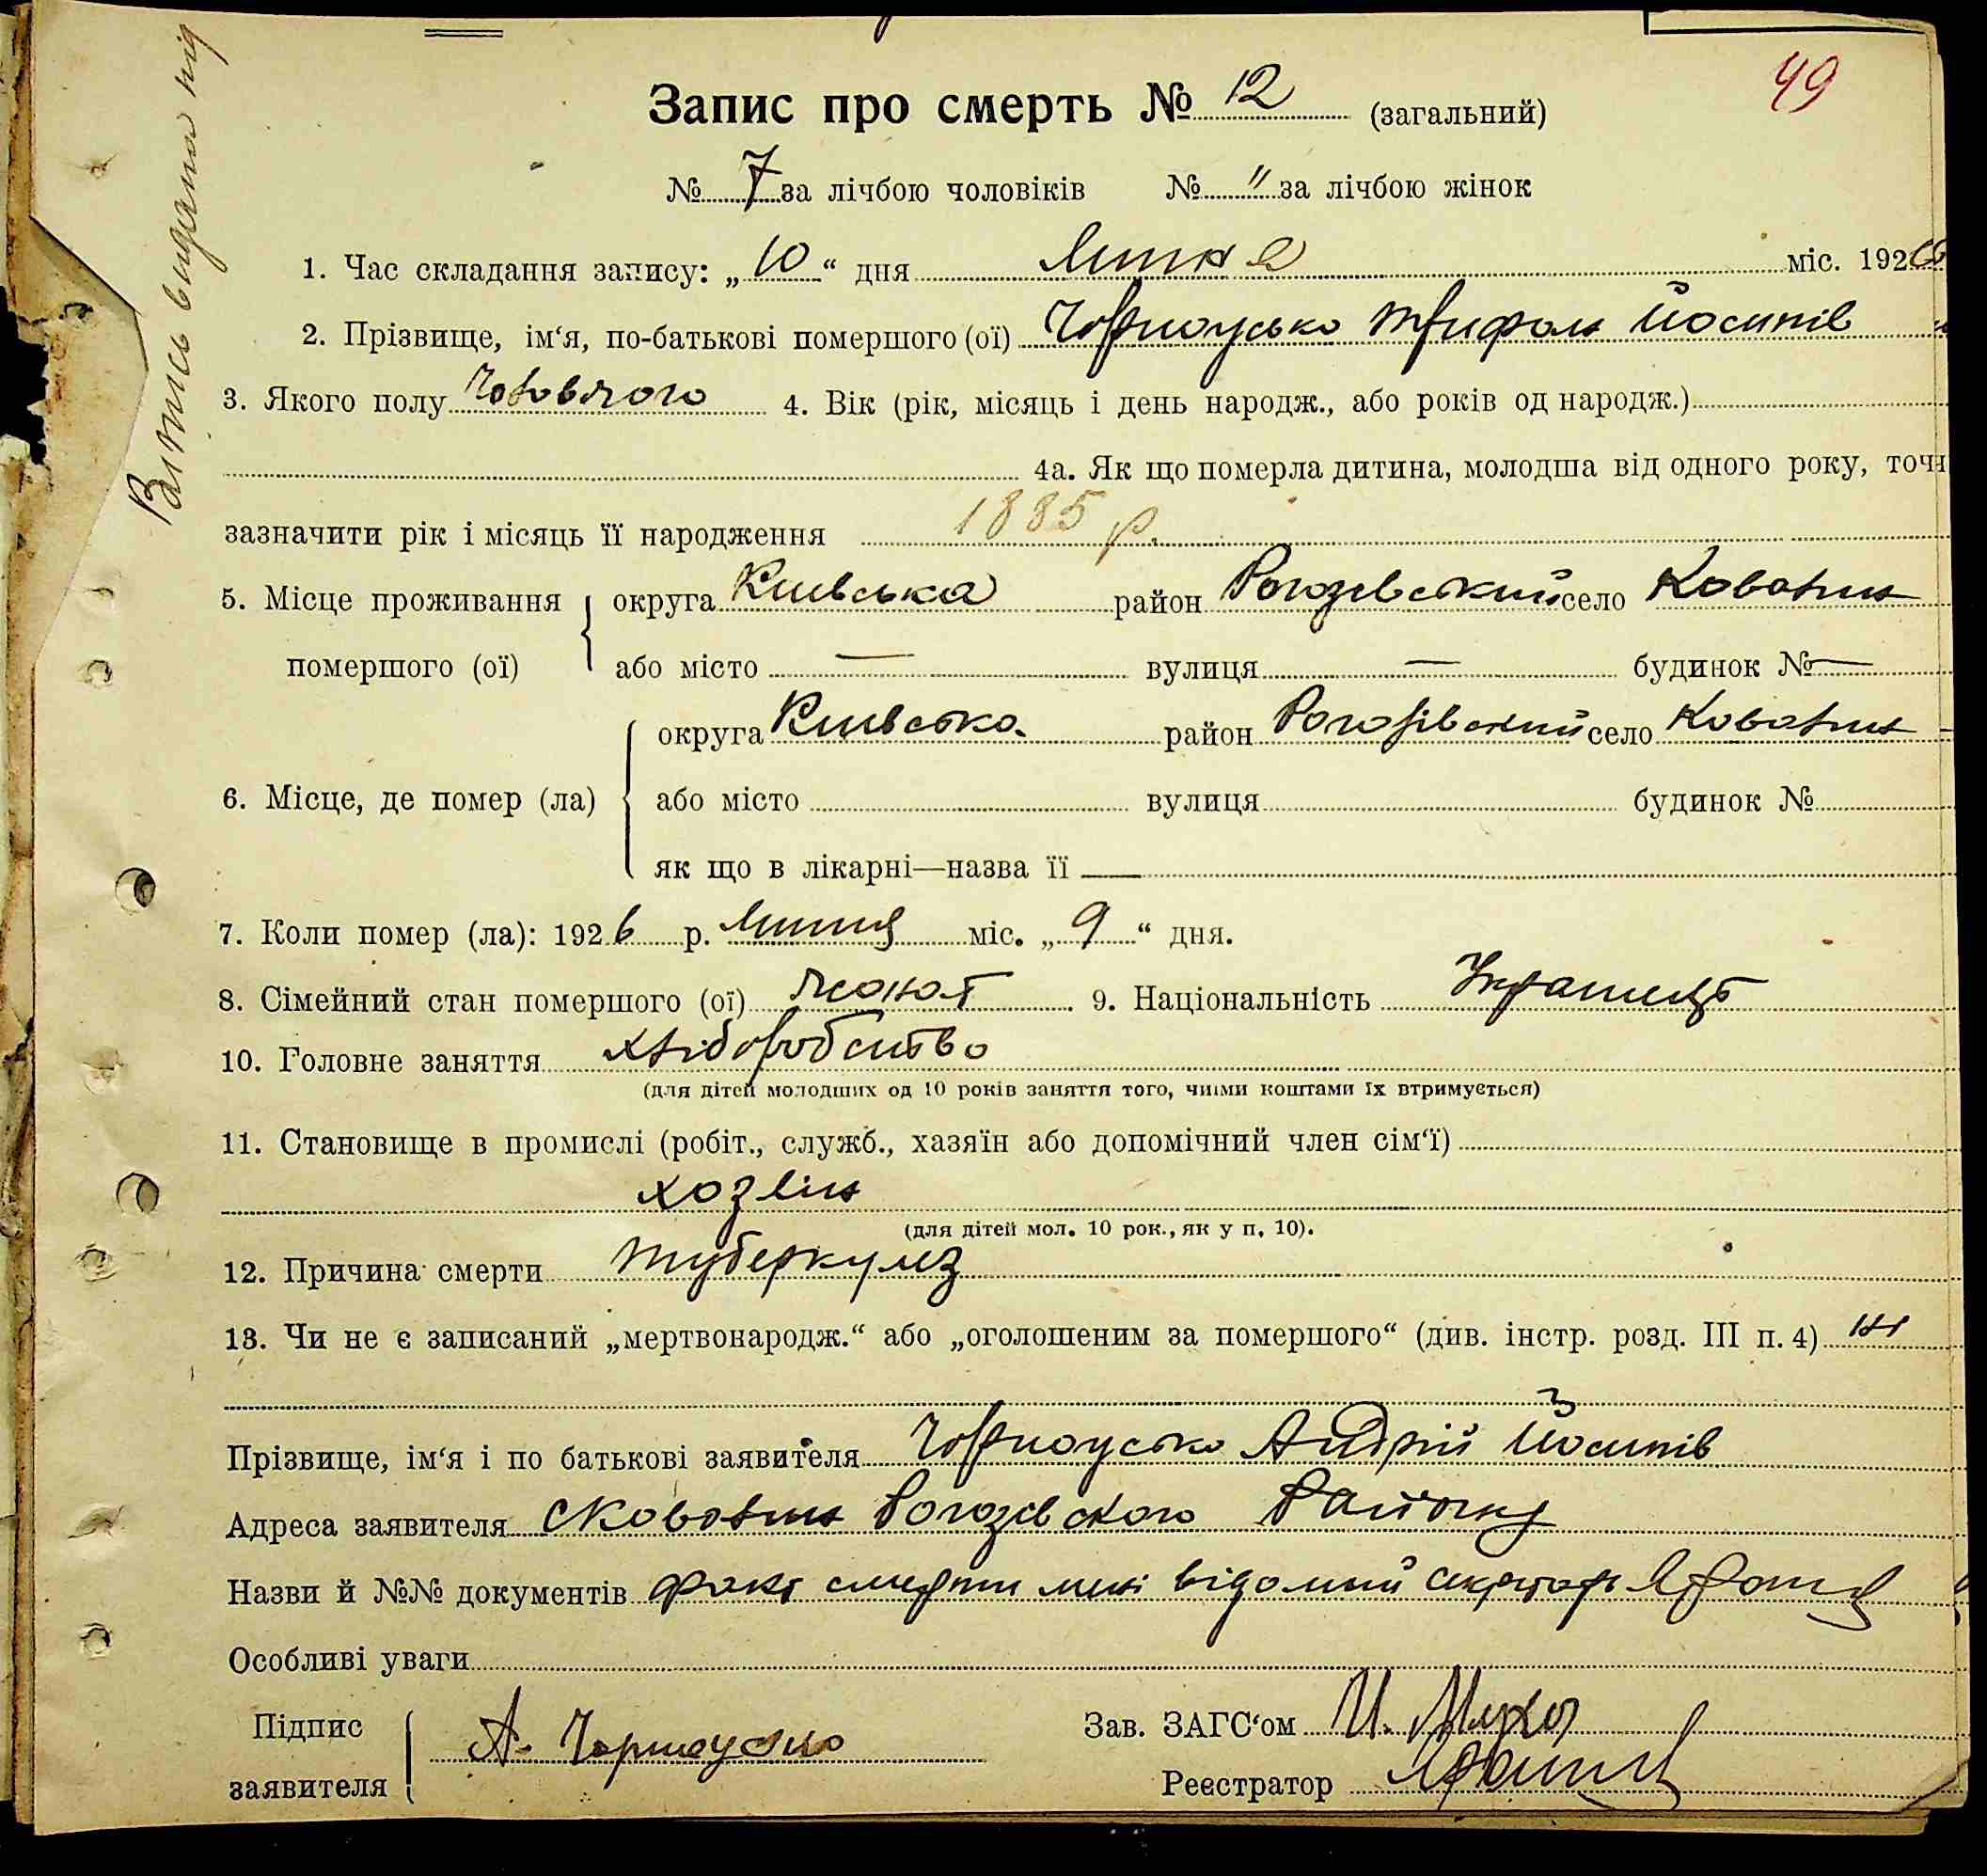 49
Запис про смерть № 12 (загальний)
№ 7 за лічбою чоловіків № " за лічбою жінок
1. Час складання запису: „10“ дня Липня міс. 1926
2. Прізвище, ім‘я, по-батькові помершого (ої) Чорноусько Трифон Йосипів
3. Якого полу Чоловячого 4. Вік (рік, місяць і день народж., або років од народж.)
4а. Як що померла дитина, молодша від одного року, точн
зазначити рік і місяць її народження 1885 р.
5. Місце проживання округа Київська район Рогозівський село Ковалин
помершого (ої) або місто — вулиця — будинок № —
округа Київська район Рогозівський село Ковалин
6. Місце, де помер (ла) або місто вулиця будинок №
як що в лікарні—назва її —
7. Коли помер (ла): 1926 р. Липня міс. „9“ дня.
8. Сімейний стан помершого (ої) жонат 9. Національність Українець
10. Головне заняття хліборобство
(для дітей молодших од 10 років заняття того, чиїми коштами їх втримується)
11. Становище в промислі (робіт., служб., хазяїн або допомічний член сім‘ї)
хозяїн
(для дітей мол. 10 рок., як у п. 10).
12. Причина смерти туберкулез
13. Чи не є записаний „мертвонародж.“ або „оголошеним за помершого“ (див. інстр. розд. III п. 4) ні
Прізвище, ім‘я і по батькові заявителя Чорноусько Андрій Йосипів
Адреса заявителя с Ковалин Рогозівского Району
Назви й №№ документів факт смерти мені відомий секретарь
Особливі уваги
Підпис А. Чорноусько Зав. ЗАГС‘ом И. Муха
заявителя Реєстратор
Випись видана під